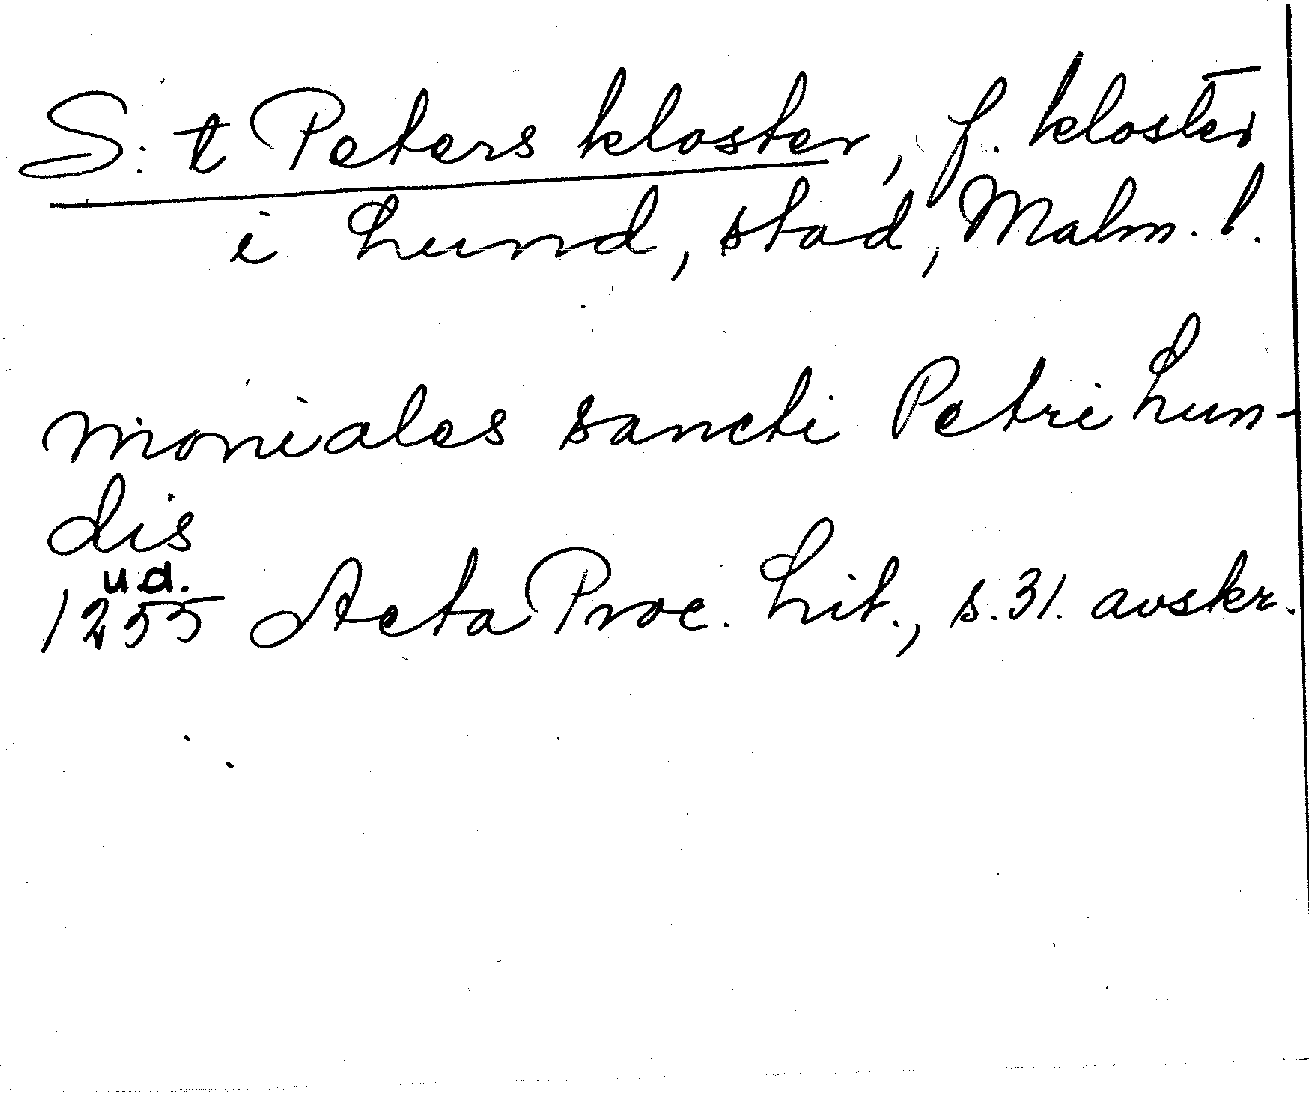 S:t Peters kloster, f. kloster
i Lund, stad, Malm. l.
moniales sancti Petri Lun-
dis
u.d.
1255 Acta Proc. Lit., s. 31. avskr.